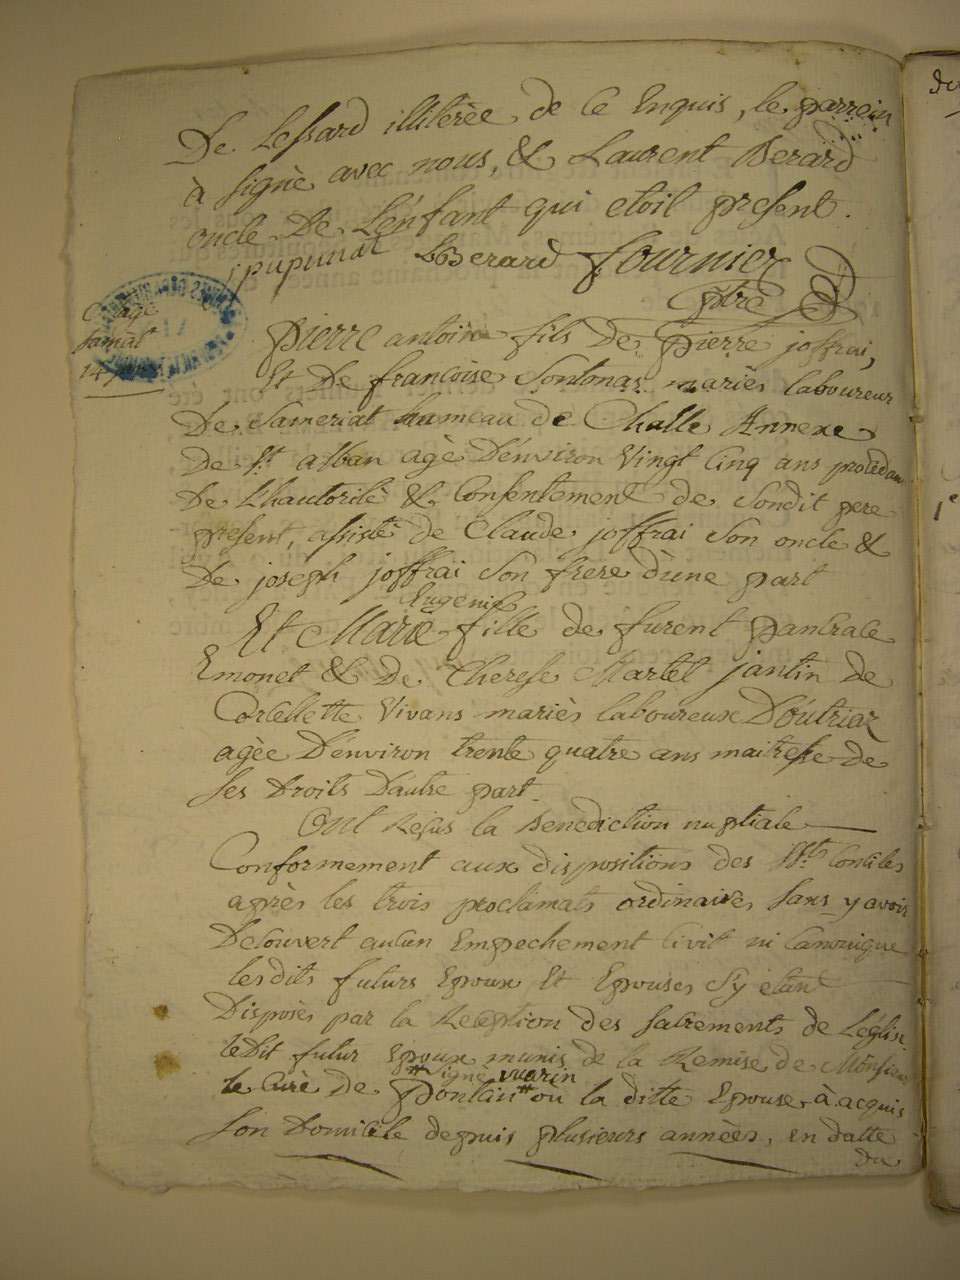 De Lessard illiterée de ce Enquis, le parrein
à signé avec nous, & Laurent Berard
oncle De L'énfant qui etoit present.
jpupunat LBerard fournier
ptre
Pierre antoine fils De Pierre joffrai,
Et De francoise Sontonax mariés laboureur
De Sameriat hameau de Challe Annexe
De St alban agé D'énviron Vingt Cinq ans procedant
De L'hautorité & Consentement de Sondit pere
present, assisté de Claude joffrai Son oncle &
De joseph joffrai Son frere d'une part
Eugenie
Et Marie fille de furent Pancrace
Emonet & De Therese Martel jantin de
Corcellette Vivans mariés laboureux D'óutriaz
agée D'environ trente quatre ans maitresse de
ses Droits D'autre part.
Ont Resus la Benediction nuptiale
Conformement aux dispositions des Sts Conciles
après les trois proclamats ordinaires sans y avoir
Decouvert aucun Empechement Civil ni Canonique
lesdits futurs Epoux Et Epouses S'y etant
Disposés par la Reception des sacrements de L'église
ledit futur Epoux munis de la Remise de Monsieur
signé
le Curé de Poncin ou la ditte Epouse à acquis
son Domicile depuis plusieurs années, en datte
du